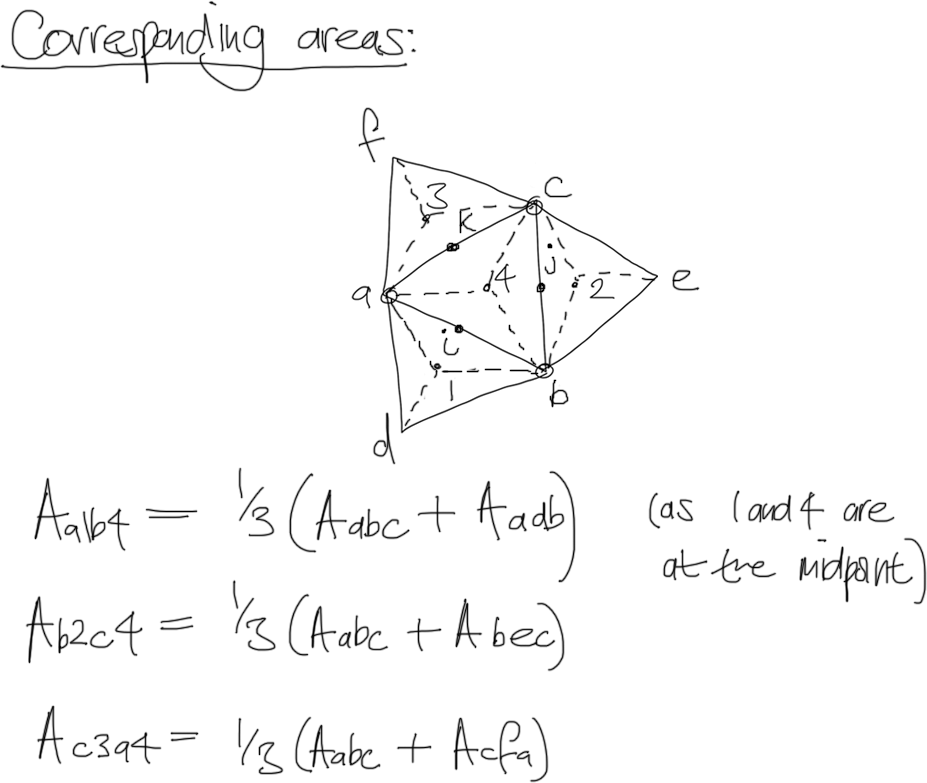 Corresponding areas:
f
c
3
k
a
4
j
2
e
i
1
b
d
Aa1b4 = 1/3 (Aabc + Aadb) (as 1 and 4 are
at the midpoint)
Ab2c4 = 1/3 (Aabc + Abec)
Ac3a4 = 1/3 (Aabc + Acfa)